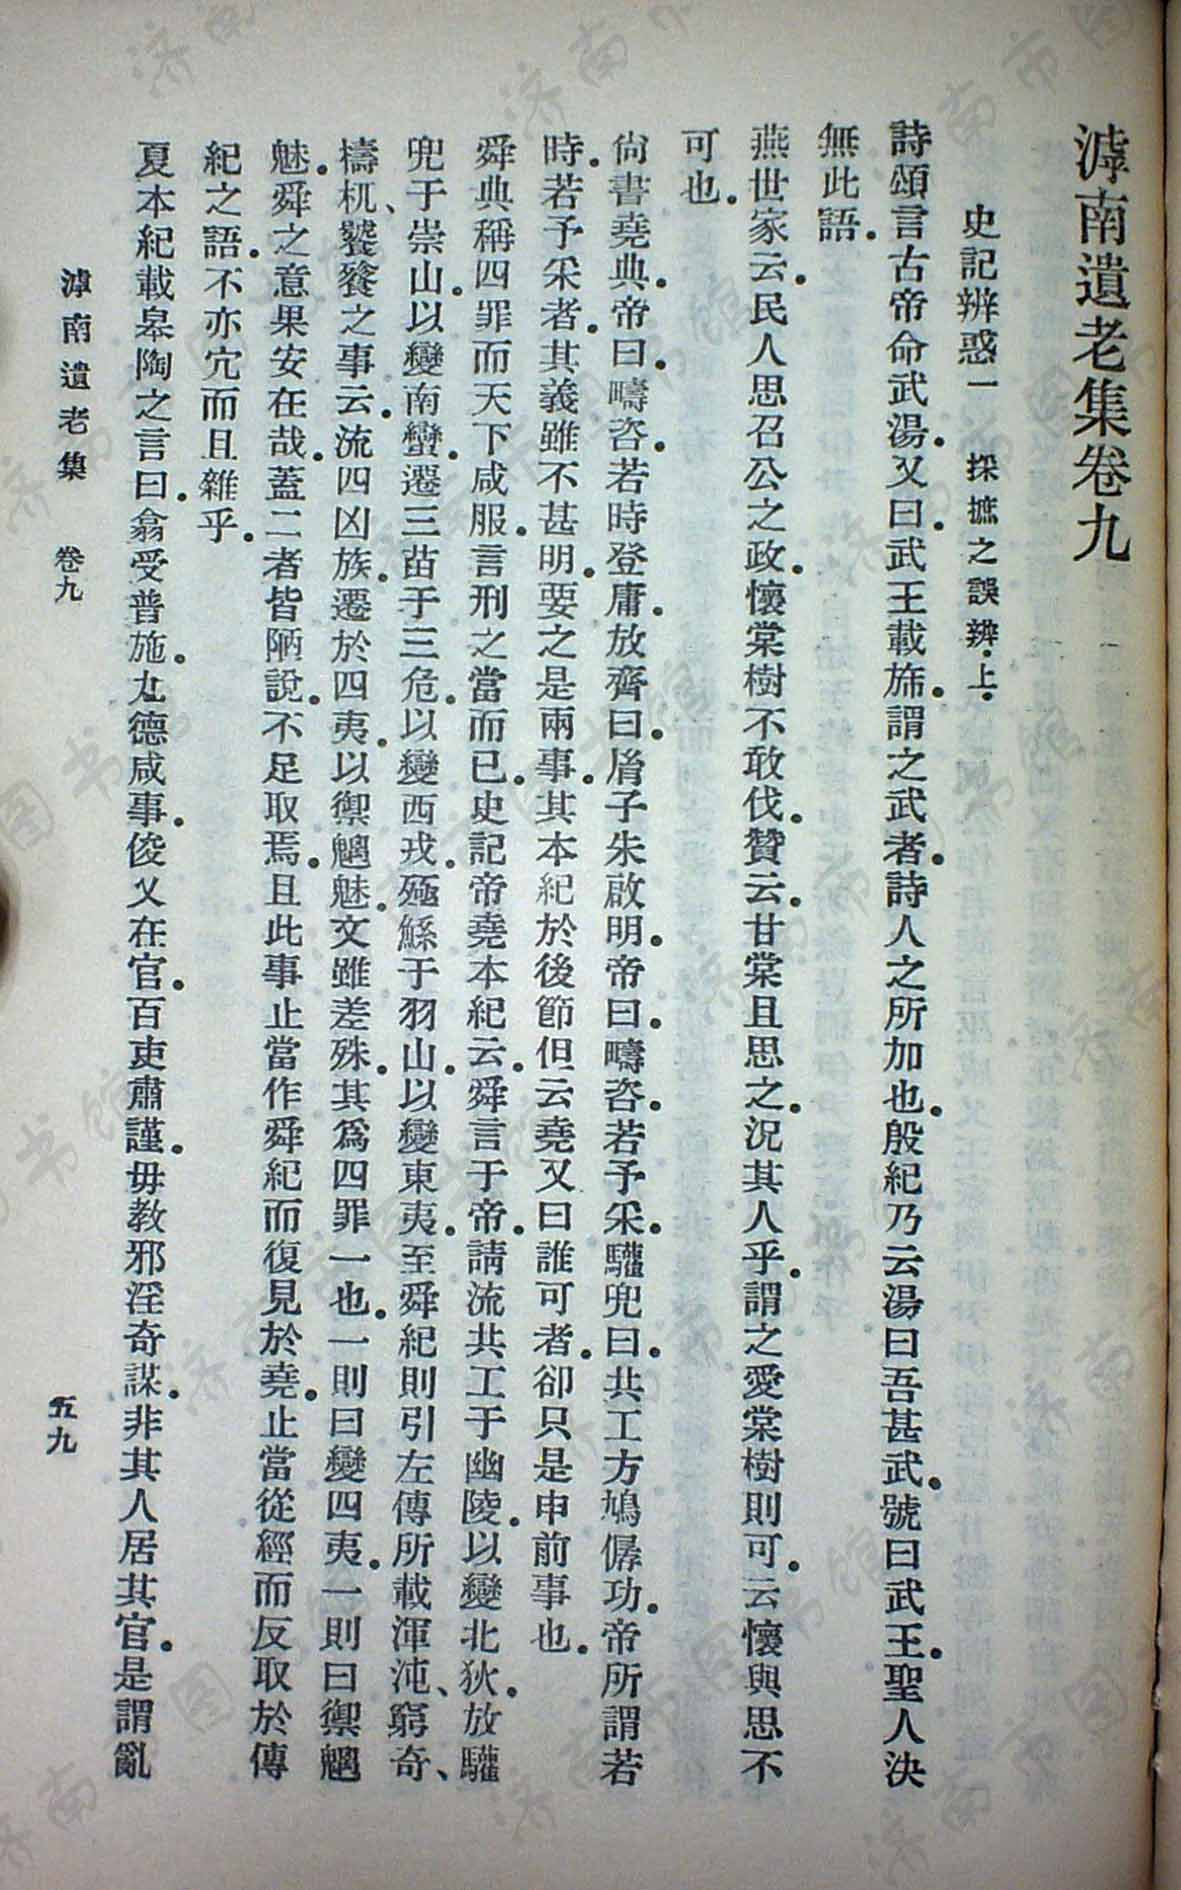 滹南遺老集卷九
史記辨惑一　採摭之誤辨・上・
詩頌言古帝命武湯。又曰。武王載旆。謂之武者。詩人之所加也。殷紀乃云湯曰吾甚武。號曰武王。聖人決
無此語。
燕世家云。民人思召公之政。懷棠樹不敢伐。贊云。甘棠且思之。況其人乎。謂之愛棠樹則可。云懷與思不
可也。
尙書堯典。帝曰。疇咨。若時登庸。放齊曰。胤子朱啟明。帝曰。疇咨。若予采。驩兜曰。共工方鳩僝功。帝所謂若
時。若予采者。其義雖不甚明。要之是兩事。其本紀於後節但云堯又曰誰可者。卻只是申前事也。
舜典稱四罪而天下咸服。言刑之當而已。史記帝堯本紀云。舜言于帝。請流共工于幽陵。以變北狄。放驩
兜于崇山。以變南蠻。遷三苗于三危。以變西戎。殛鯀于羽山。以變東夷。至舜紀則引左傳所載渾沌、窮奇、
檮杌、饕餮之事云。流四凶族。遷於四夷。以禦魑魅。文雖差殊。其爲四罪一也。一則曰變四夷。一則曰禦魑
魅。舜之意果安在哉。蓋二者皆陋說。不足取焉。且此事止當作舜紀而復見於堯。止當從經而反取於傳
紀之語。不亦宂而且雜乎。
夏本紀載皋陶之言曰。翕受普施。九德咸事。俊乂在官。百吏肅謹。毋教邪淫奇謀。非其人居其官。是謂亂
滹南遺老集　卷九　五九